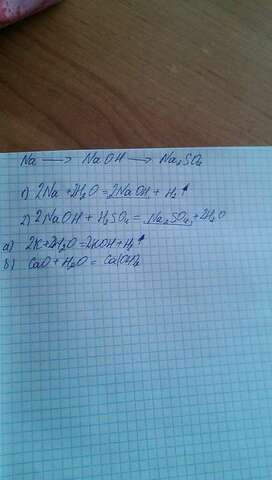 Na → NaOH → Na₂SO₄
1) 2Na + 2H₂O = 2NaOH + H₂↑
2) 2NaOH + H₂SO₄ = Na₂SO₄ + 2H₂O
а) 2K + 2H₂O = 2KOH + H₂↑
б) CaO + H₂O = Ca(OH)₂